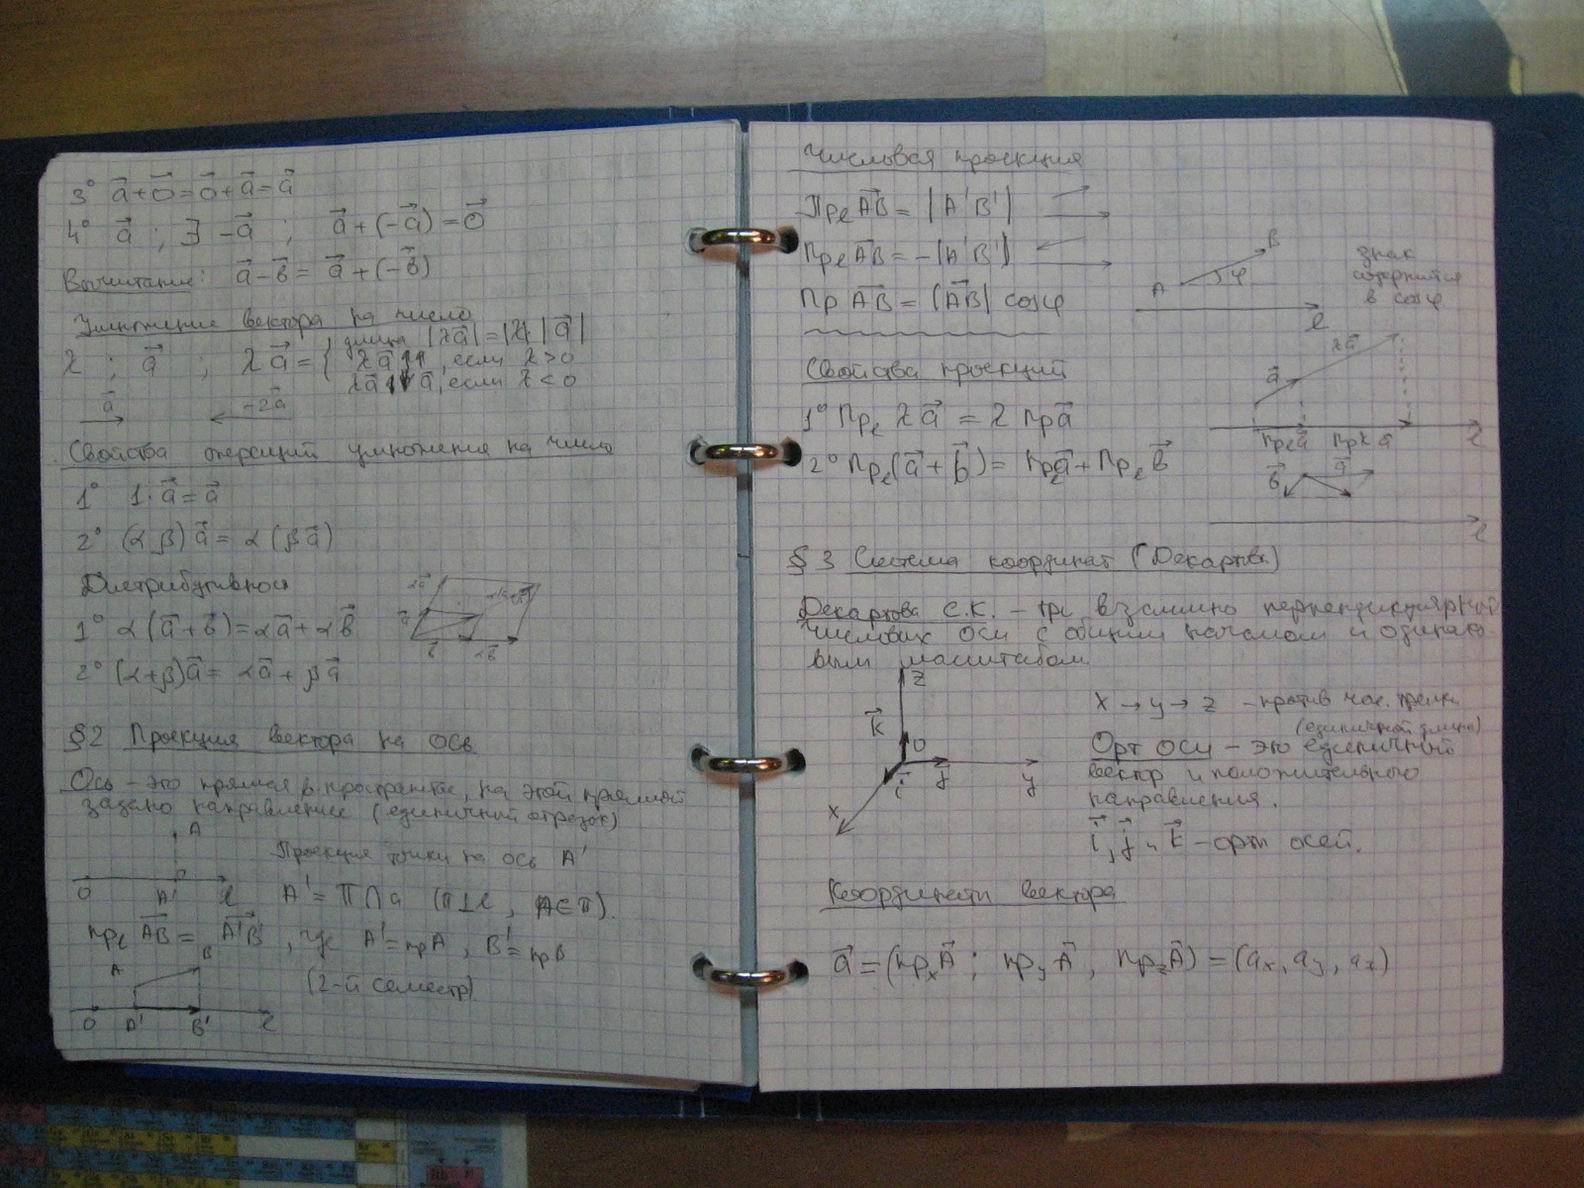 3° a⃗+0⃗=0⃗+a⃗=a⃗
4° a⃗ ; ∃ -a⃗ ; a⃗+(-a⃗)=0⃗
Вычитание: a⃗-b⃗=a⃗+(-b⃗)
Умножение вектора на число
длина |λa⃗|=|λ||a⃗|
λ ; a⃗ ; λa⃗={ λa⃗↑↑, если λ>0
λa⃗↑↓a⃗, если λ<0
a⃗ -2a⃗
Свойства операций умножения на число
1° 1·a⃗=a⃗
2° (αβ)a⃗=α(βa⃗)
Дистрибутивност
1° α(a⃗+b⃗)=αa⃗+αb⃗
2° (α+β)a⃗=αa⃗+βa⃗
§2 Проекция вектора на ось
Ось – это прямая в пространстве, на этой прямой
задано направление (единичный отрезок)
A
Проекция точки на ось A'
O A' l A'=π∩a (π⊥l, A∈π).
пр_l AB⃗=A'B'⃗, где A'=прA, B'=прB
A B
(2-й семестр)
O A' B' l
Числовая проекция
Пр_l AB⃗=|A'B'|
Пр_l AB⃗=-|A'B'|
Пр AB⃗=|AB⃗| cosφ
A B φ l
знак
содержится
в cosφ
Свойства проекций
1° Пр_l λa⃗=λ прa⃗
2° Пр_l(a⃗+b⃗)=пр_l a⃗+Пр_l b⃗
a⃗ λa⃗
пр_l a⃗ пр λa⃗ l
b⃗ a⃗
l
§3 Система координат (Декартов.)
Декартова С.К. – три взаимно перпендикулярной
числовых оси с общим началом и одинако-
вым масштабом.
z
k⃗
O
i⃗ j⃗ y
x
x→y→z – против час. стрелки
(единичной длины)
Орт оси – это единичный
вектор и положительного
направления.
i⃗, j⃗ и k⃗ – орты осей.
Координаты вектора
a⃗=(пр_x A⃗; пр_y A⃗, пр_z A⃗)=(a_x, a_y, a_z)